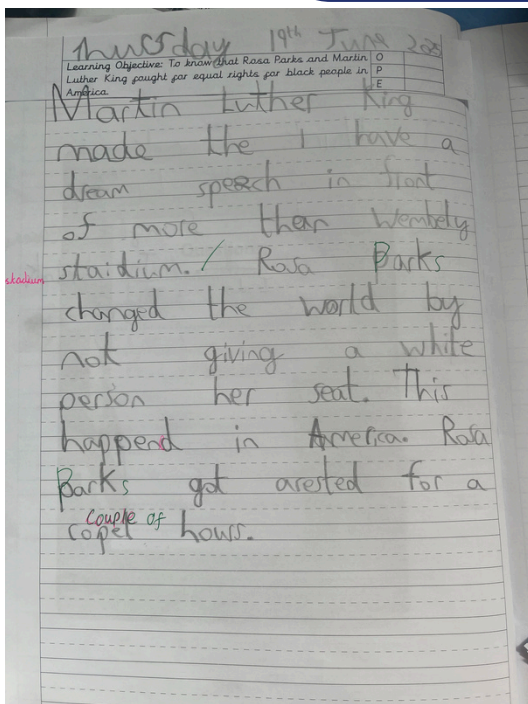 Thursday 19th June 2025
Learning Objective: To know that Rosa Parks and Martin
Luther King fought for equal rights for black people in
America.
O
P
E
Martin Luther King
made the I have a
dream speech in front
of more then Wembely
staidium. / Rosa Parks
stadium
changed the world by
not giving a white
person her seat. This
happend in America. Rosa
Parks got arested for a
couple of
copel hours.